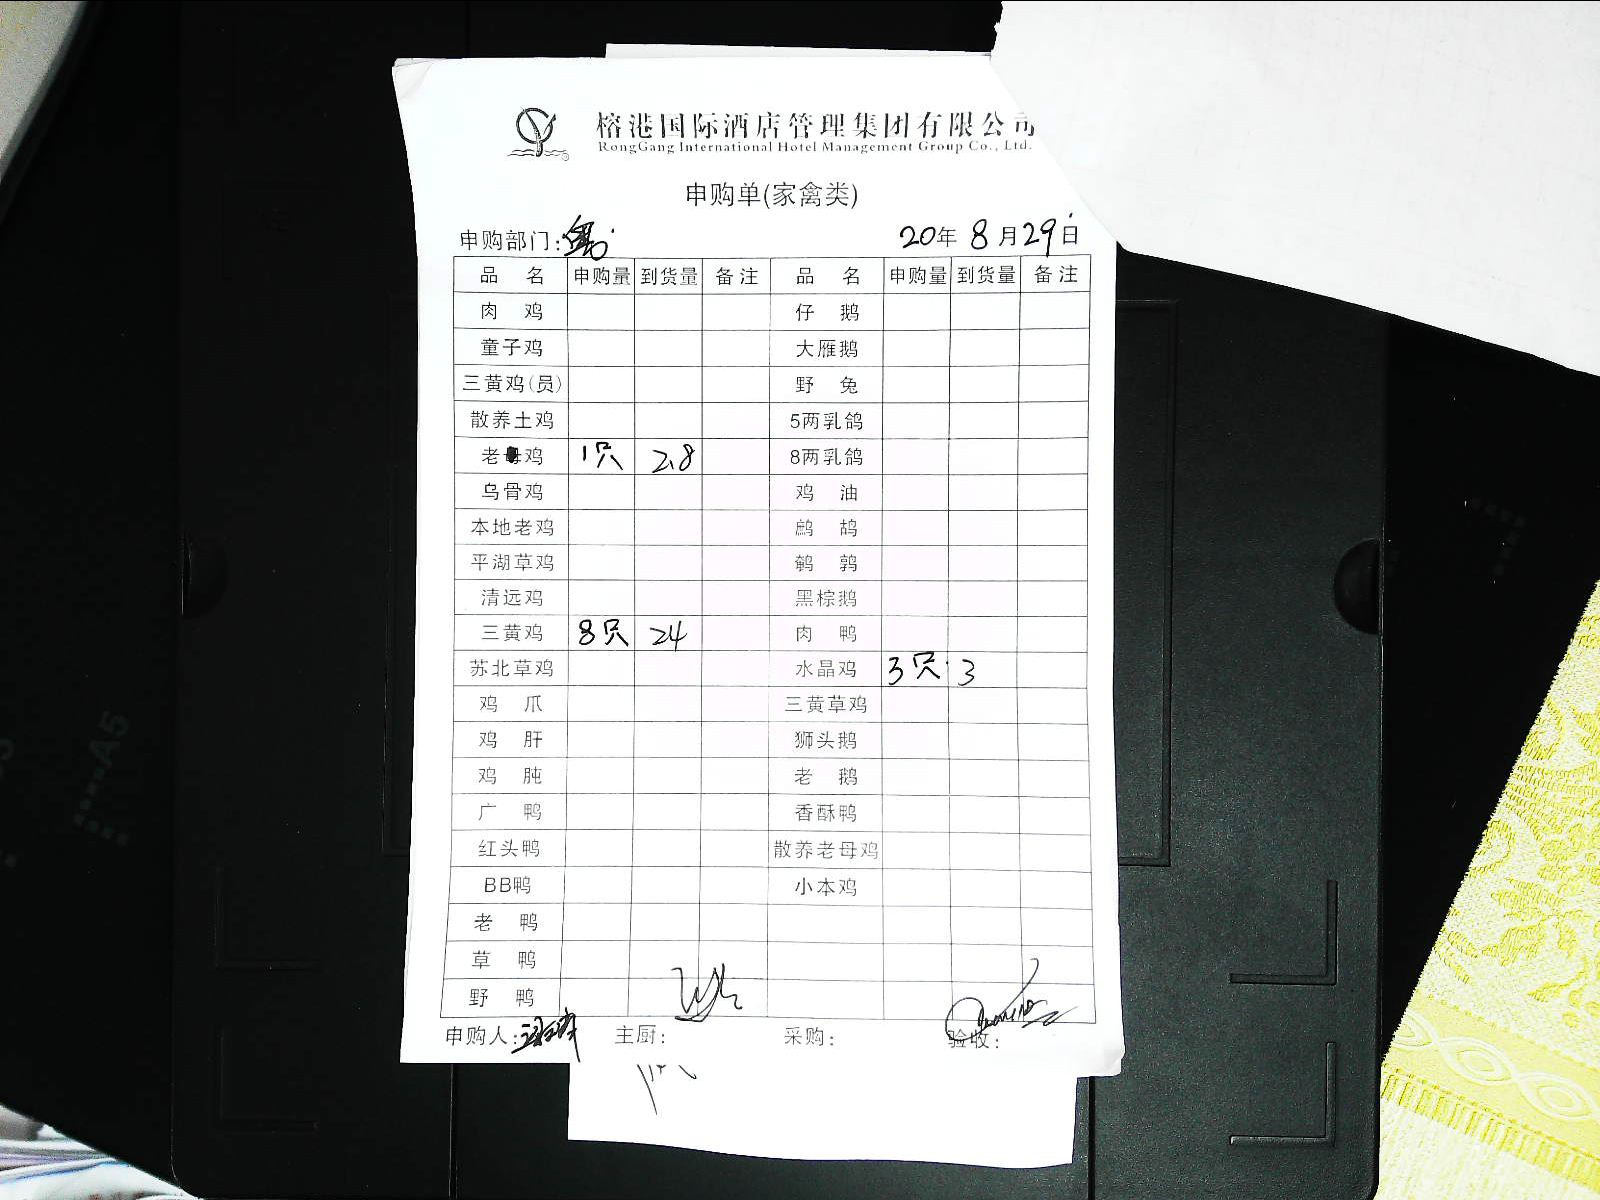 榕港国际酒店管理集团有限公司
RongGang International Hotel Management Group Co., Ltd.
申购单(家禽类)
申购部门: 20年 8月29日
品名 申购量 到货量 备注 品名 申购量 到货量 备注
肉鸡 仔鹅
童子鸡 大雁鹅
三黄鸡(员) 野兔
散养土鸡 5两乳鸽
老 鸡 1只 2.8 8两乳鸽
乌骨鸡 鸡油
本地老鸡 鹧鸪
平湖草鸡 鹌鹑
清远鸡 黑棕鹅
三黄鸡 8只 24 肉鸭
苏北草鸡 水晶鸡 3只 3
鸡爪 三黄草鸡
鸡肝 狮头鹅
鸡肫 老鹅
广鸭 香酥鸭
红头鸭 散养老母鸡
BB鸭 小本鸡
老鸭
草鸭
野鸭
申购人: 主厨: 采购: 验收:
A5